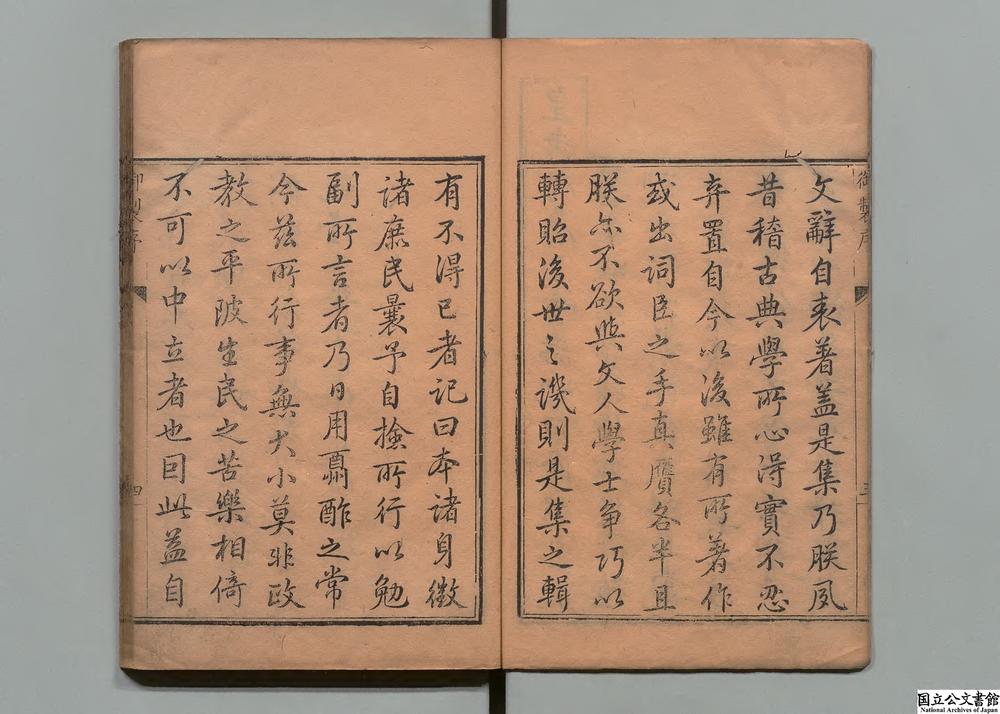 文辭自表著盖是集乃朕夙
昔稽古典學所心得實不忍
弃置自今以後雖有所著作
或出詞臣之手真贋各半且
朕亦不欲與文人學士争巧以
轉貽後世之譏則是集之輯
有不得已者記曰本諸身徵
諸庶民曩予自撿所行以勉
副所言者乃日用酬酢之常
今兹所行事無大小莫非政
教之平陂生民之苦樂相倚
不可以中立者也囙此益自
御製序
三
御製序
四
国立公文書館
National Archives of Japan